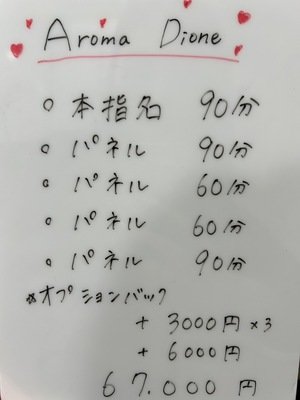 Aroma Dione
○ 本指名 90分
○ パネル 90分
○ パネル 60分
○ パネル 60分
○ パネル 90分
※オプションバック
+ 3000円×3
+ 6000円
67.000円